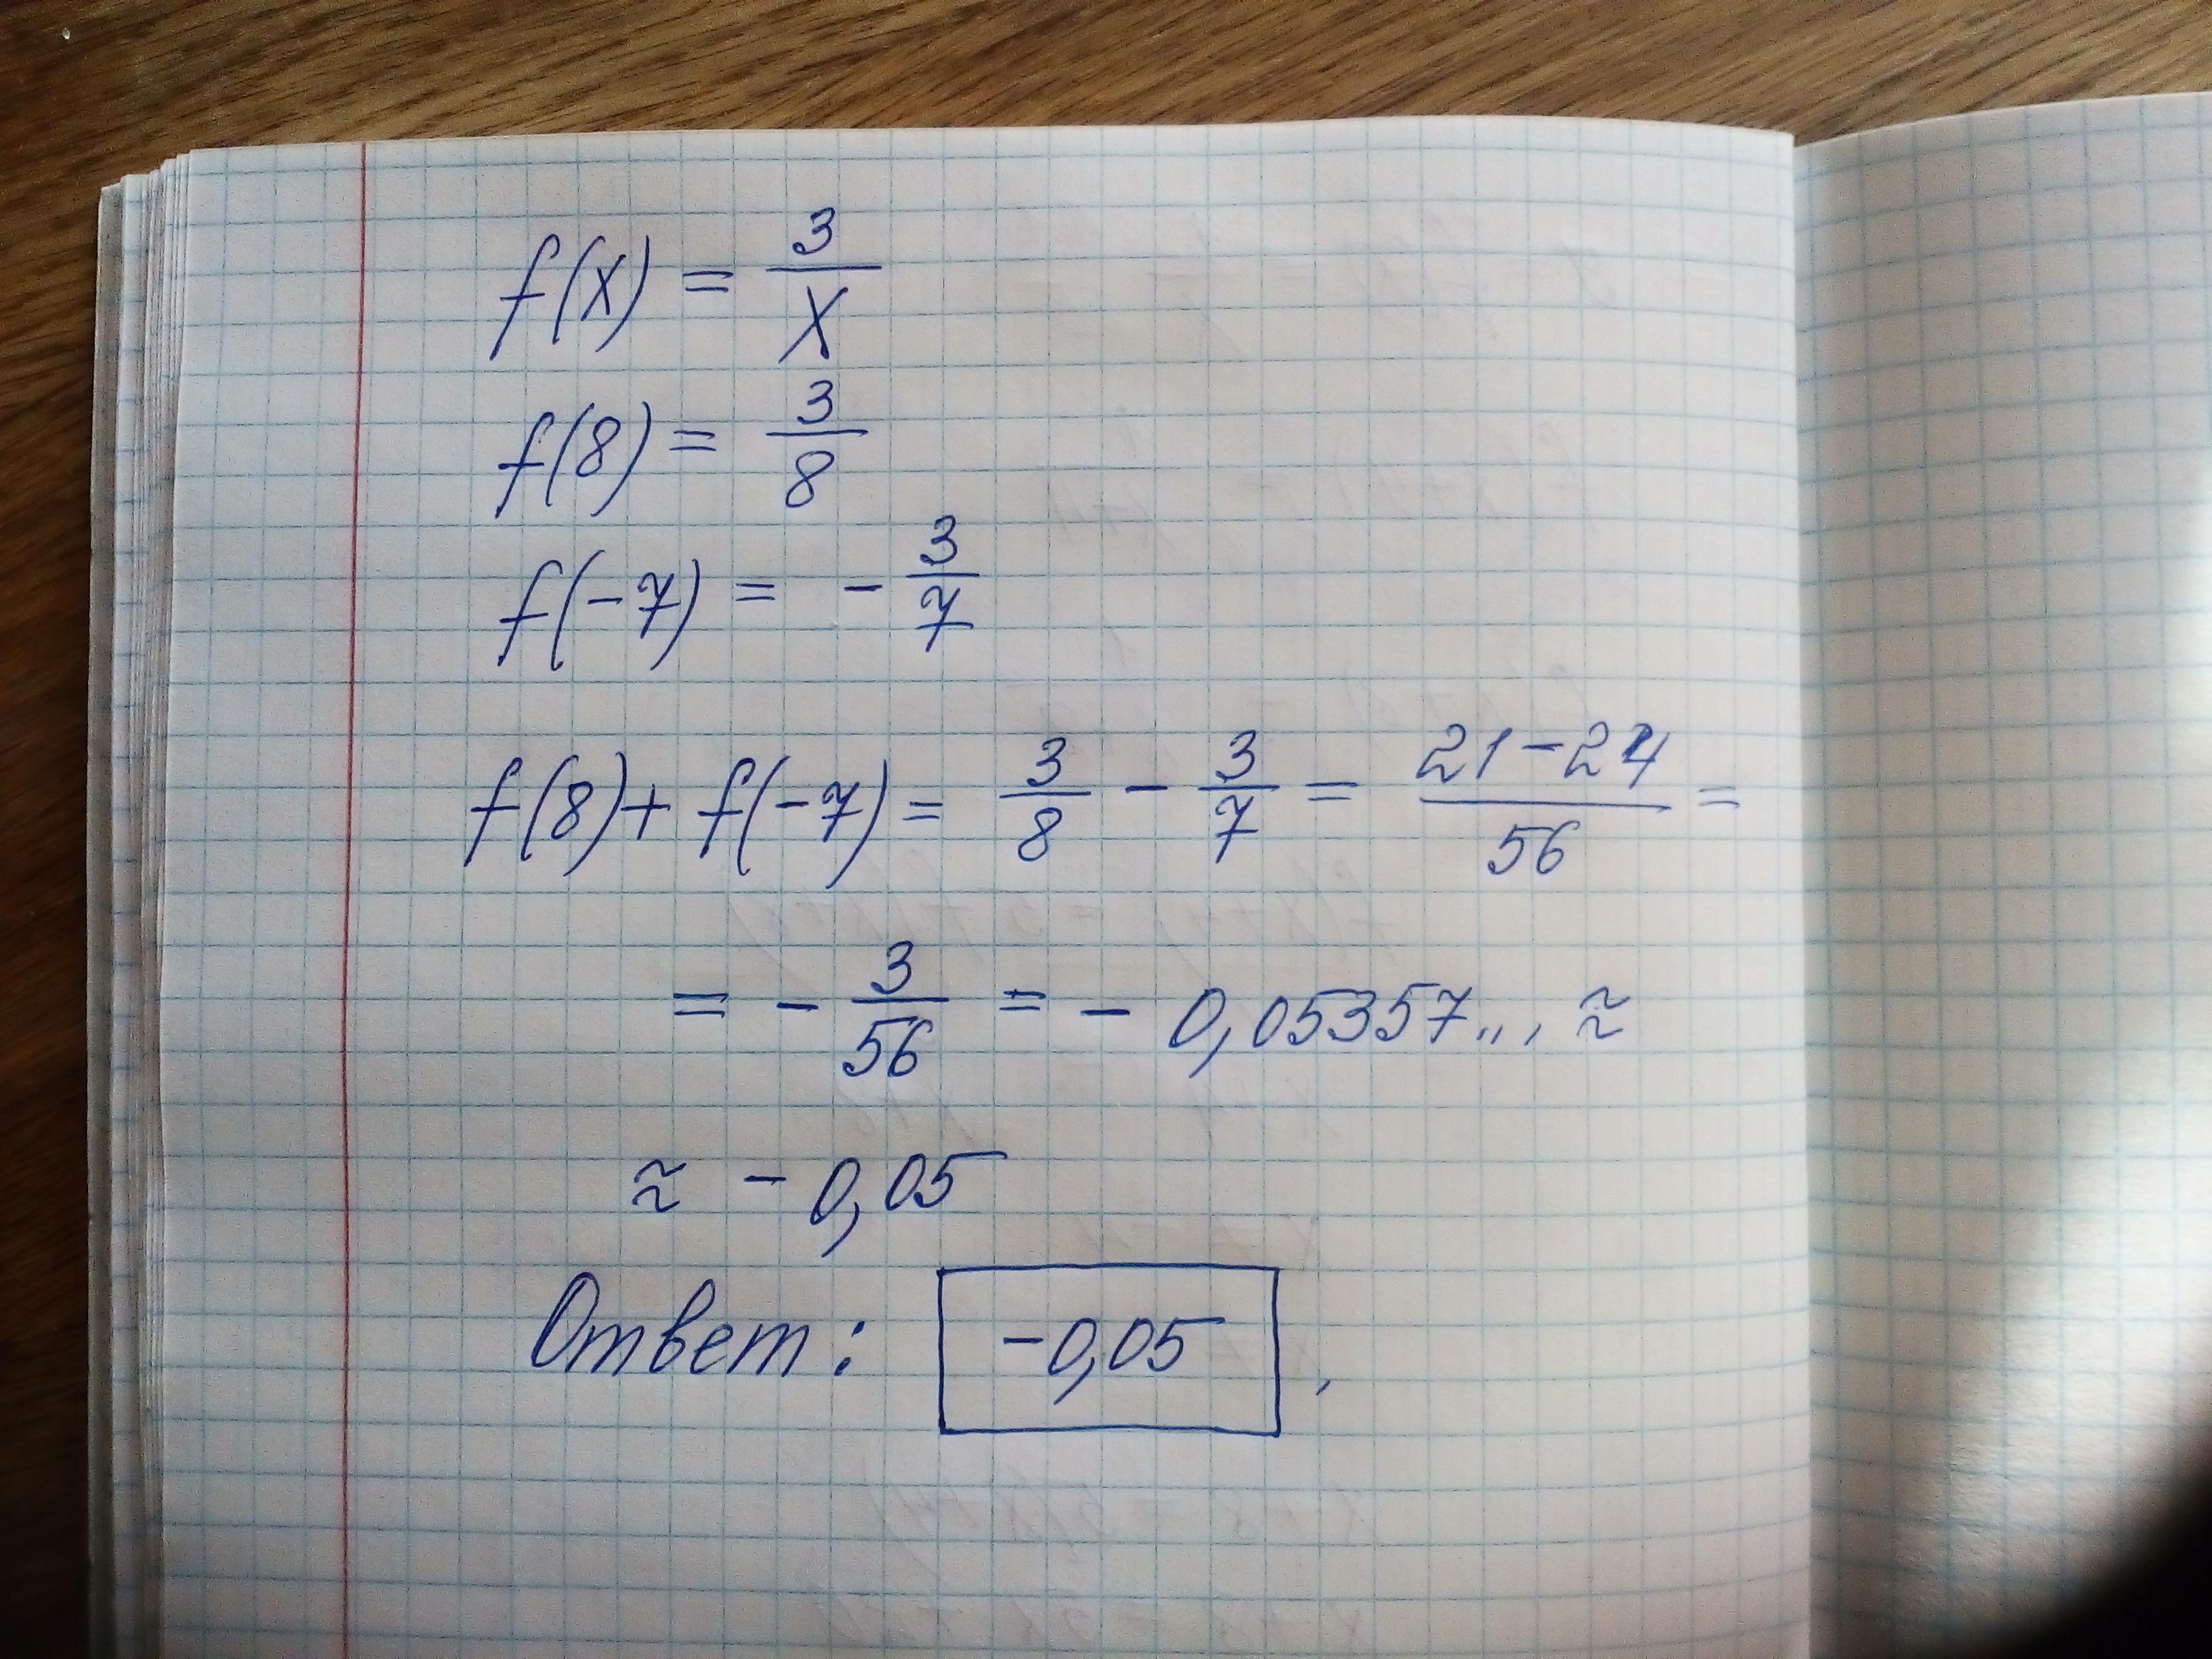 f(x) = 3/x
f(8) = 3/8
f(-7) = - 3/7
f(8)+ f(-7) = 3/8 - 3/7 = (21-24)/56 =
= - 3/56 = - 0,05357... ≈
≈ - 0,05
Ответ: -0,05.